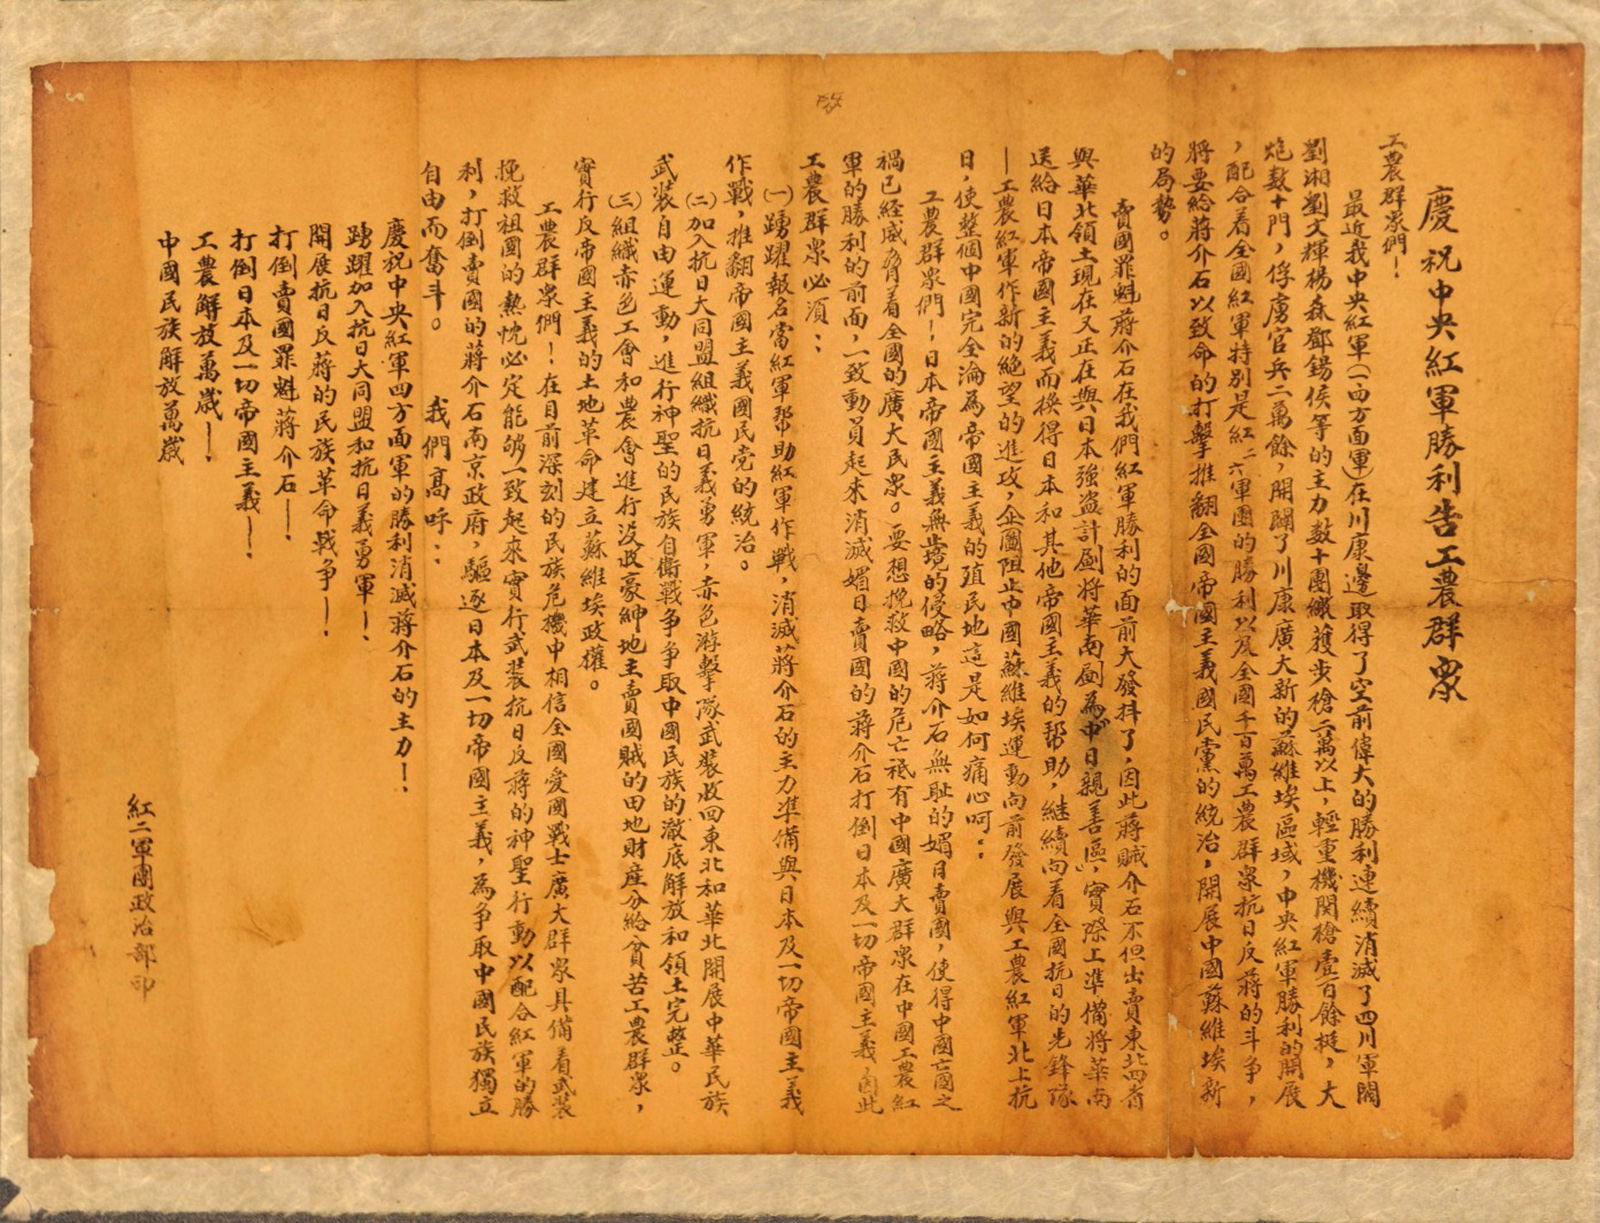 慶祝中央紅軍勝利告工農群衆
工農群衆們！
最近我中央紅軍（一四方面軍）在川康邊取得了空前偉大的勝利連續消滅了四川軍閥
劉湘劉文輝楊森鄧錫侯等的主力数十團繳獲步槍二萬以上，輕重機関槍壹百餘挺，大
炮数十門，俘虜官兵二萬餘，開闢了川康廣大新的蘇維埃區域，中央紅軍勝利的開展
，配合着全國紅軍特別是紅二六軍團的勝利以及全國千百萬工農群衆抗日反蔣的斗争，
將要給蔣介石以致命的打擊推翻全國帝國主義國民黨的統治，開展中國蘇維埃新
的局勢。
賣國罪魁蔣介石在我們紅軍勝利的面前大發抖了，因此蔣賊介石不但出賣東北四省
與華北領土現在又正在與日本強盗計劃将華南劃為中日親善區，實際上準備將華南
送給日本帝國主義而換得日本和其他帝國主義的帮助，継續向着全國抗日的先鋒隊
—工農紅軍作新的絶望的進攻，企圖阻止中國蘇維埃運動向前發展與工農紅軍北上抗
日，使整個中國完全淪為帝國主義的殖民地這是如何痛心呵：
工農群衆們！日本帝國主義無止境的侵略，蔣介石無耻的媚日賣國，使得中國亡國之
禍已経威脅着全國的廣大民衆。要想挽救中國的危亡祗有中國廣大群衆在中國工農紅
軍的勝利的前面，一致動員起來消滅媚日賣國的蔣介石打倒日本及一切帝國主義，因此
工農群衆必須：
（一）踴躍報名當紅軍帮助紅軍作戰，消滅蔣介石的主力準備與日本及一切帝國主義
作戰，推翻帝國主義國民党的統治。
（二）加入抗日大同盟組織抗日義勇軍，赤色游擊隊武装收回東北和華北開展中華民族
武装自由運動，進行神聖的民族自衛戰争争取中國民族的澈底解放和領土完整。
（三）組織赤色工會和農會進行没收豪紳地主賣國賊的田地財産分給貧苦工農群衆，
實行反帝國主義的土地革命建立蘇維埃政權。
工農群衆們！在目前深刻的民族危機中相信全國愛國戰士廣大群衆具備着武装
挽救祖國的熱忱必定能够一致起來實行武装抗日反蔣的神聖行動以配合紅軍的勝
利，打倒賣國的蔣介石南京政府，驅逐日本及一切帝國主義，為争取中國民族獨立
自由而奮斗。　我們高呼：
慶祝中央紅軍四方面軍的勝利消滅蔣介石的主力！
踴躍加入抗日大同盟和抗日義勇軍！
開展抗日反蔣的民族革命戰争！
打倒賣國罪魁蔣介石！
打倒日本及一切帝國主義！
工農解放萬歲！
中國民族解放萬歲
紅二軍團政治部印